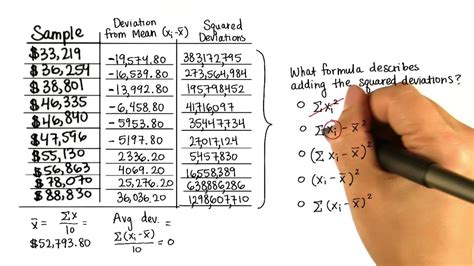 Sample Deviation from Mean (xᵢ-x̄) Squared Deviations
$33,219 -19,574.80 383172795
$36,254 -16,539.80 273,564,984
$38,801 -13,992.80 195798452
$46,335 -6,458.80 41716097
$46,840 -5953.80 35447734
$47,596 -5197.80 27,017,124
$55,130 2336.20 5457830
$56,863 4069.20 16,558,389
$78,070 25,276.20 638886286
$88,830 36,036.20 1298607710
x̄ = Σx/10 =
$52,793.80
Avg dev. =
Σ(xᵢ-x̄)/10 = 0
What formula describes
adding the squared deviations?
○ Σxᵢ²
○ Σxᵢ - x̄²
○ (Σxᵢ - x̄)²
○ (xᵢ - x̄)²
○ Σ(xᵢ - x̄)²